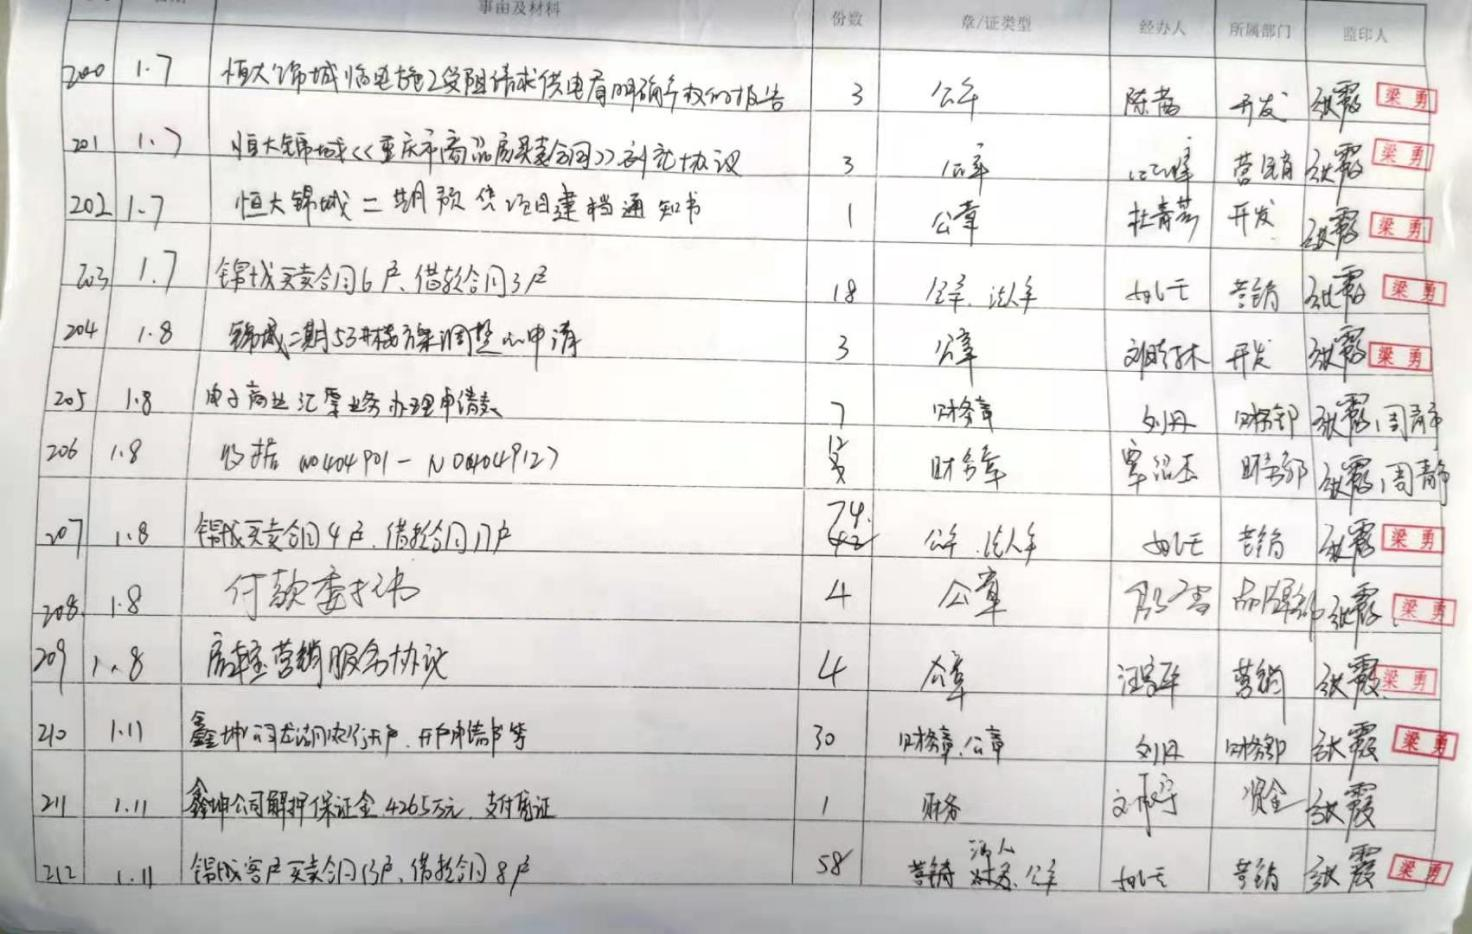 事由及材料 份数 章/证类型 经办人 所属部门 监印人
200 1.7 恒大锦城临电施工受阻请求供电局明确产权的报告 3 公章 陈茜 开发 张霞 梁勇
201 1.7 恒大锦城《重庆市商品房买卖合同》补充协议 3 公章 营销 张霞 梁勇
202 1.7 恒大锦城二期预售项目建档通知书 1 公章 杜青芳 开发 张霞 梁勇
203 1.7 锦城买卖合同6户、借款合同3户 18 公章、法人章 营销 张霞 梁勇
204 1.8 锦城二期53#楼方案调整的申请 3 公章 开发 张霞 梁勇
205 1.8 电子商业汇票业务办理申请表 7 财务章 刘丹 财务部 张霞,周静
206 1.8 收据 NO404901-NO4049127 12 财务章 覃 财务部 张霞,周静
207 1.8 锦城买卖合同4户、借款合同17户 74 公章、法人章 营销 张霞 梁勇
208 1.8 付款委托书 4 公章 品牌部 张霞 梁勇
209 1.8 房车宝营销服务协议 4 公章 营销 张霞 梁勇
210 1.11 鑫坤公司龙湖农行开户、开户申请书等 30 财务章、公章 刘丹 财务部 张霞 梁勇
211 1.11 鑫坤公司解押保证金4265万元、支付凭证 1 财务 资金 张霞
212 1.11 锦城客户买卖合同13户、借款合同8户 58 营销 法人 财务、公章 营销 张霞 梁勇